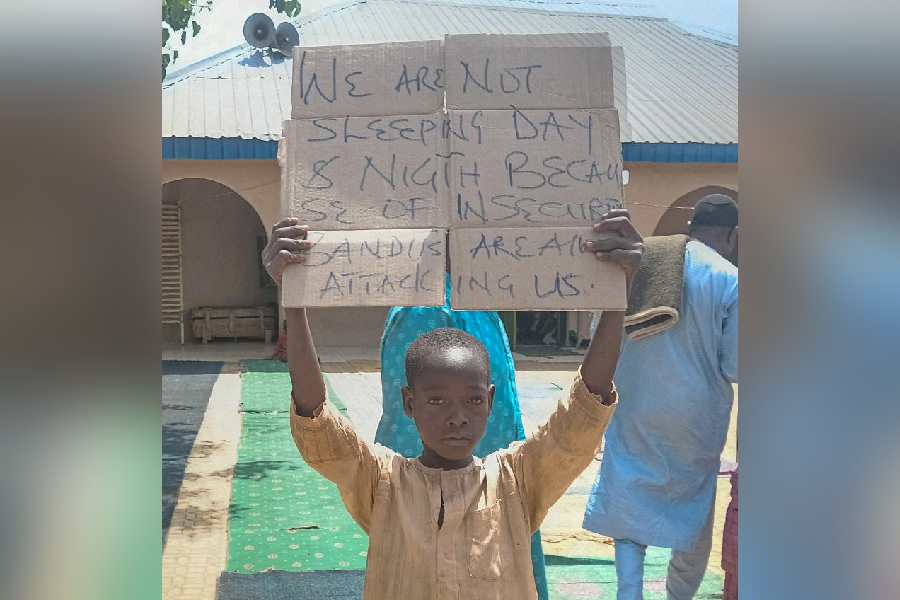 WE ARE NOT
SLEEPING DAY
& NIGTH BECAU
SE OF
BANDITS ARE
ATTACKING US.